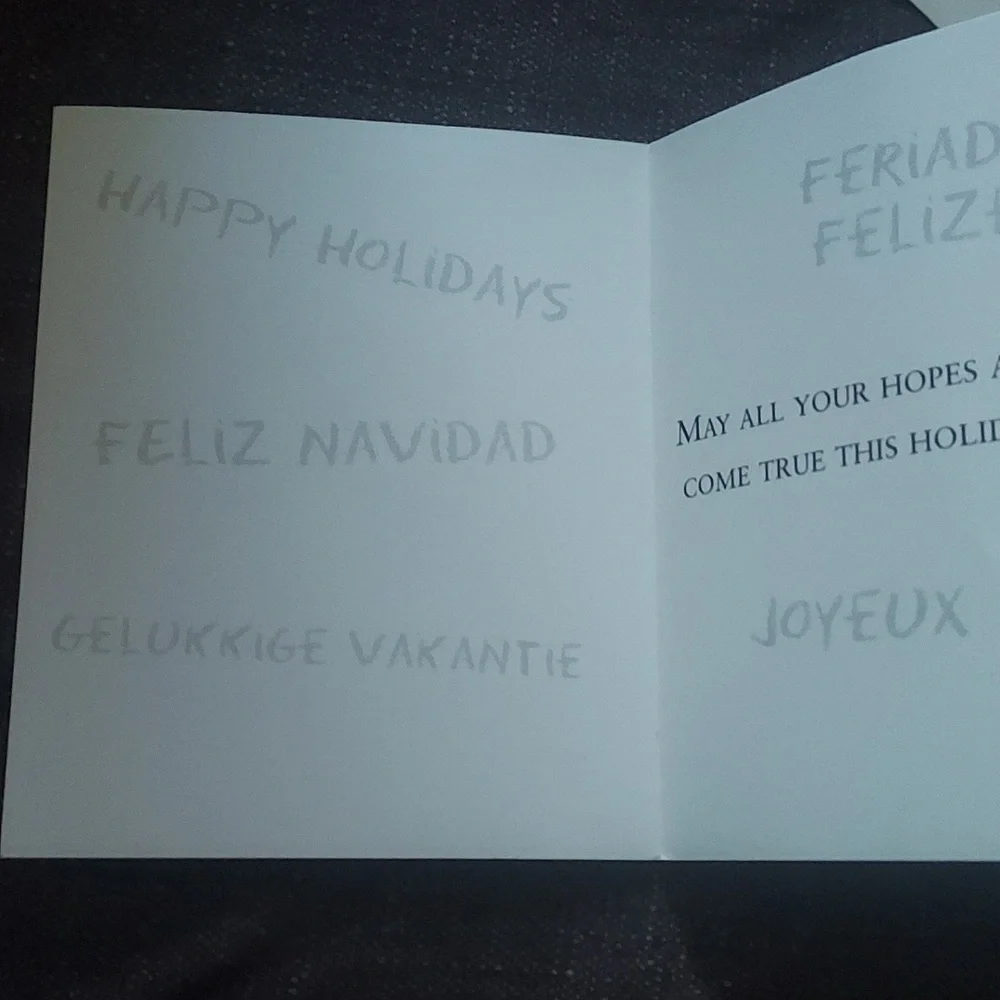 HAPPY HOLIDAYS
FELIZ NAVIDAD
GELUKKIGE VAKANTIE
FERIAD
FELIZ
MAY ALL YOUR HOPES A
COME TRUE THIS HOLID
JOYEUX